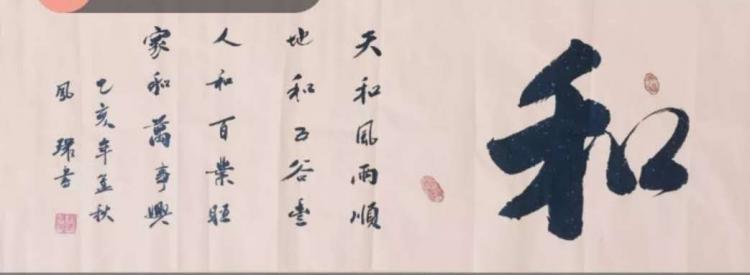 和
天和风雨順
地和五谷豊
人和百業旺
家和萬事興
乙亥年孟秋
风瑞書